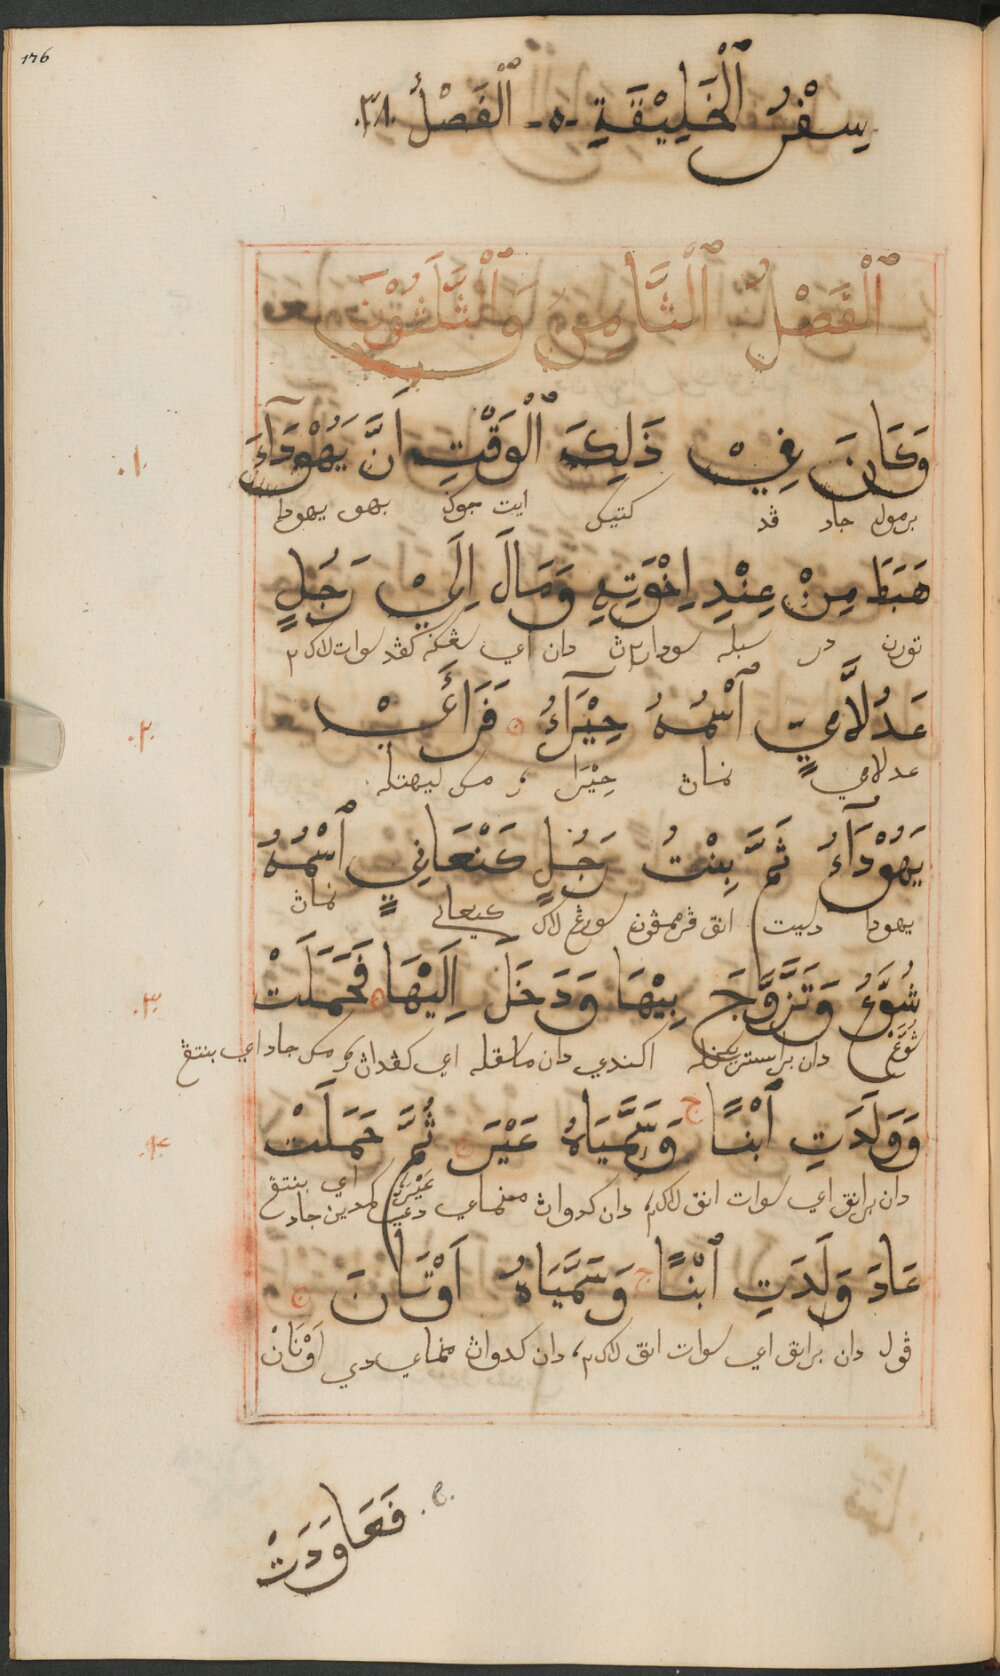 ١٧٦
سِفْرُ ٱلْخَلِيْقَةِ -٥- ٱلْفَصْلُ .٣٨.
ٱلْفَصْلُ ٱلثَّامِنُ وَٱلثَّلَثُوْنَ
.١. وَكَانَ فِيْ ذَلِكَ ٱلْوَقْتِ اَنَّ يَهُوْدَآءَ
برمول جاد ڤد كتيك ايت جوݢ بهو يهودا
هَبَطَ مِنْ عِنْدِ اِخْوَتِهِ وَمَالَ اِلَيْ رَجُلٍ
تورن در سبله سودارا٢ڽ دان اي سڠݢه كڤد سوات لاكي٢
.٢. عَدُلَّامِيٍّ ٱسْمُهُ حِيْرَآءُ فَرَاَيْ
عدلامي نماڽ حِيْرَا مك ليهتله
يَهُوْدَآءُ ثَمَّ بِنْتُ رَجُلٍ كَنْعَانِيٍ ٱسْمُهُ
يهودا دسيت انق ڤرمڤون سورڠ لاك كنعاني نماڽ
.٣. شُوَّعُ وَتَزَوَّجَ بِيْهَا وَدَخَلَ اِلَيْهَا فَحَمَلَتْ
شُوَّعْ دان براستريكنله اكندي دان ماسقله اي كڤداڽ مك جاد اي بنتڠ
.۴. وَوَلَدَتِ ٱبْنًا وَسَمَّيَاهُ عَيْرَ ثُمَّ حَمَلَتْ
دان برانق اي سوات انق لاكي٢، دان كدواڽ منماي دي عَيْرَ كمدين جاد اي بنتڠ
عَادَ وَلَدَتِ ٱبْنًا وَسَمَّيَاهُ اَوْنَانَ
ڤول دان برانق اي سوات انق لاكي٢، دان كدواڽ منماي دي اَوْنَانْ
فَعَاوَدَتْ